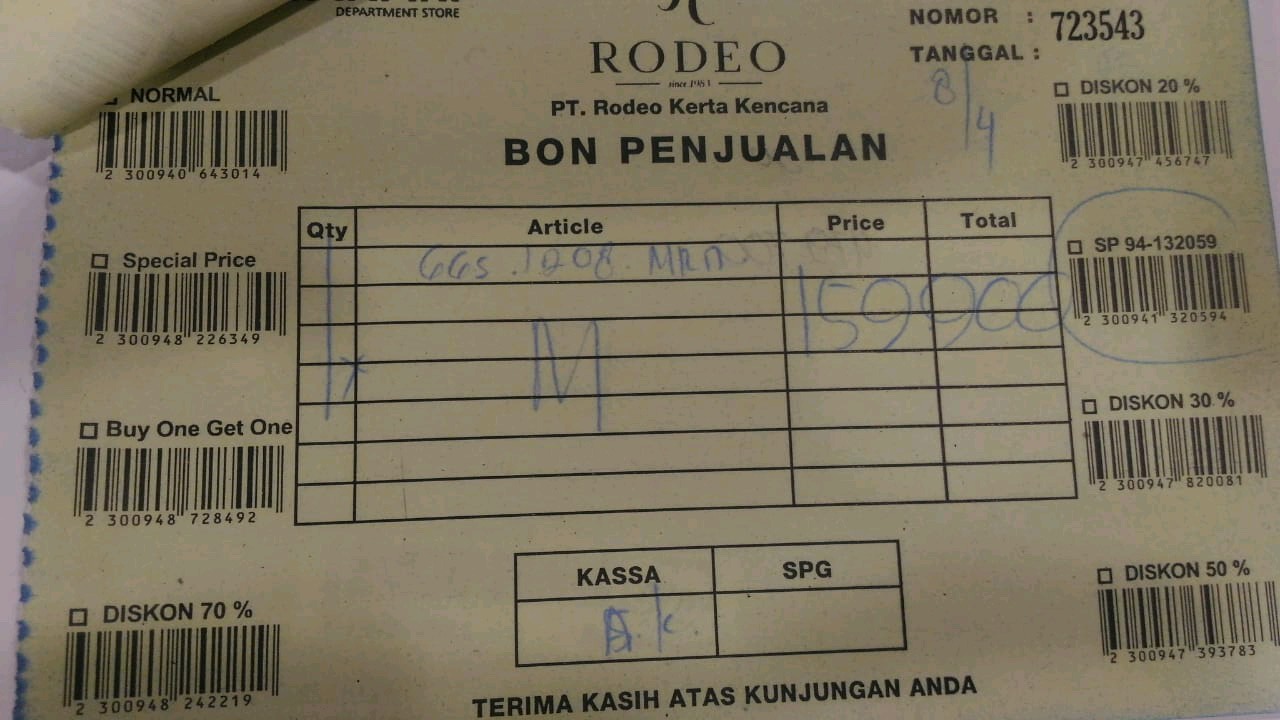 DEPARTMENT STORE
NOMOR : 723543
RODEO
TANGGAL :
8/4
since 1983
NORMAL
PT. Rodeo Kerta Kencana
DISKON 20 %
BON PENJUALAN
2 300940 643014
2 300947 456747
Qty Article Price Total
Special Price
SP 94-132059
GGS . 1208. MRM
159900
2 300948 226349
2 300941 320594
1x M
Buy One Get One
DISKON 30 %
2 300948 728492
2 300947 820081
KASSA SPG
DISKON 50 %
DISKON 70 %
2 300947 393783
2 300948 242219
TERIMA KASIH ATAS KUNJUNGAN ANDA